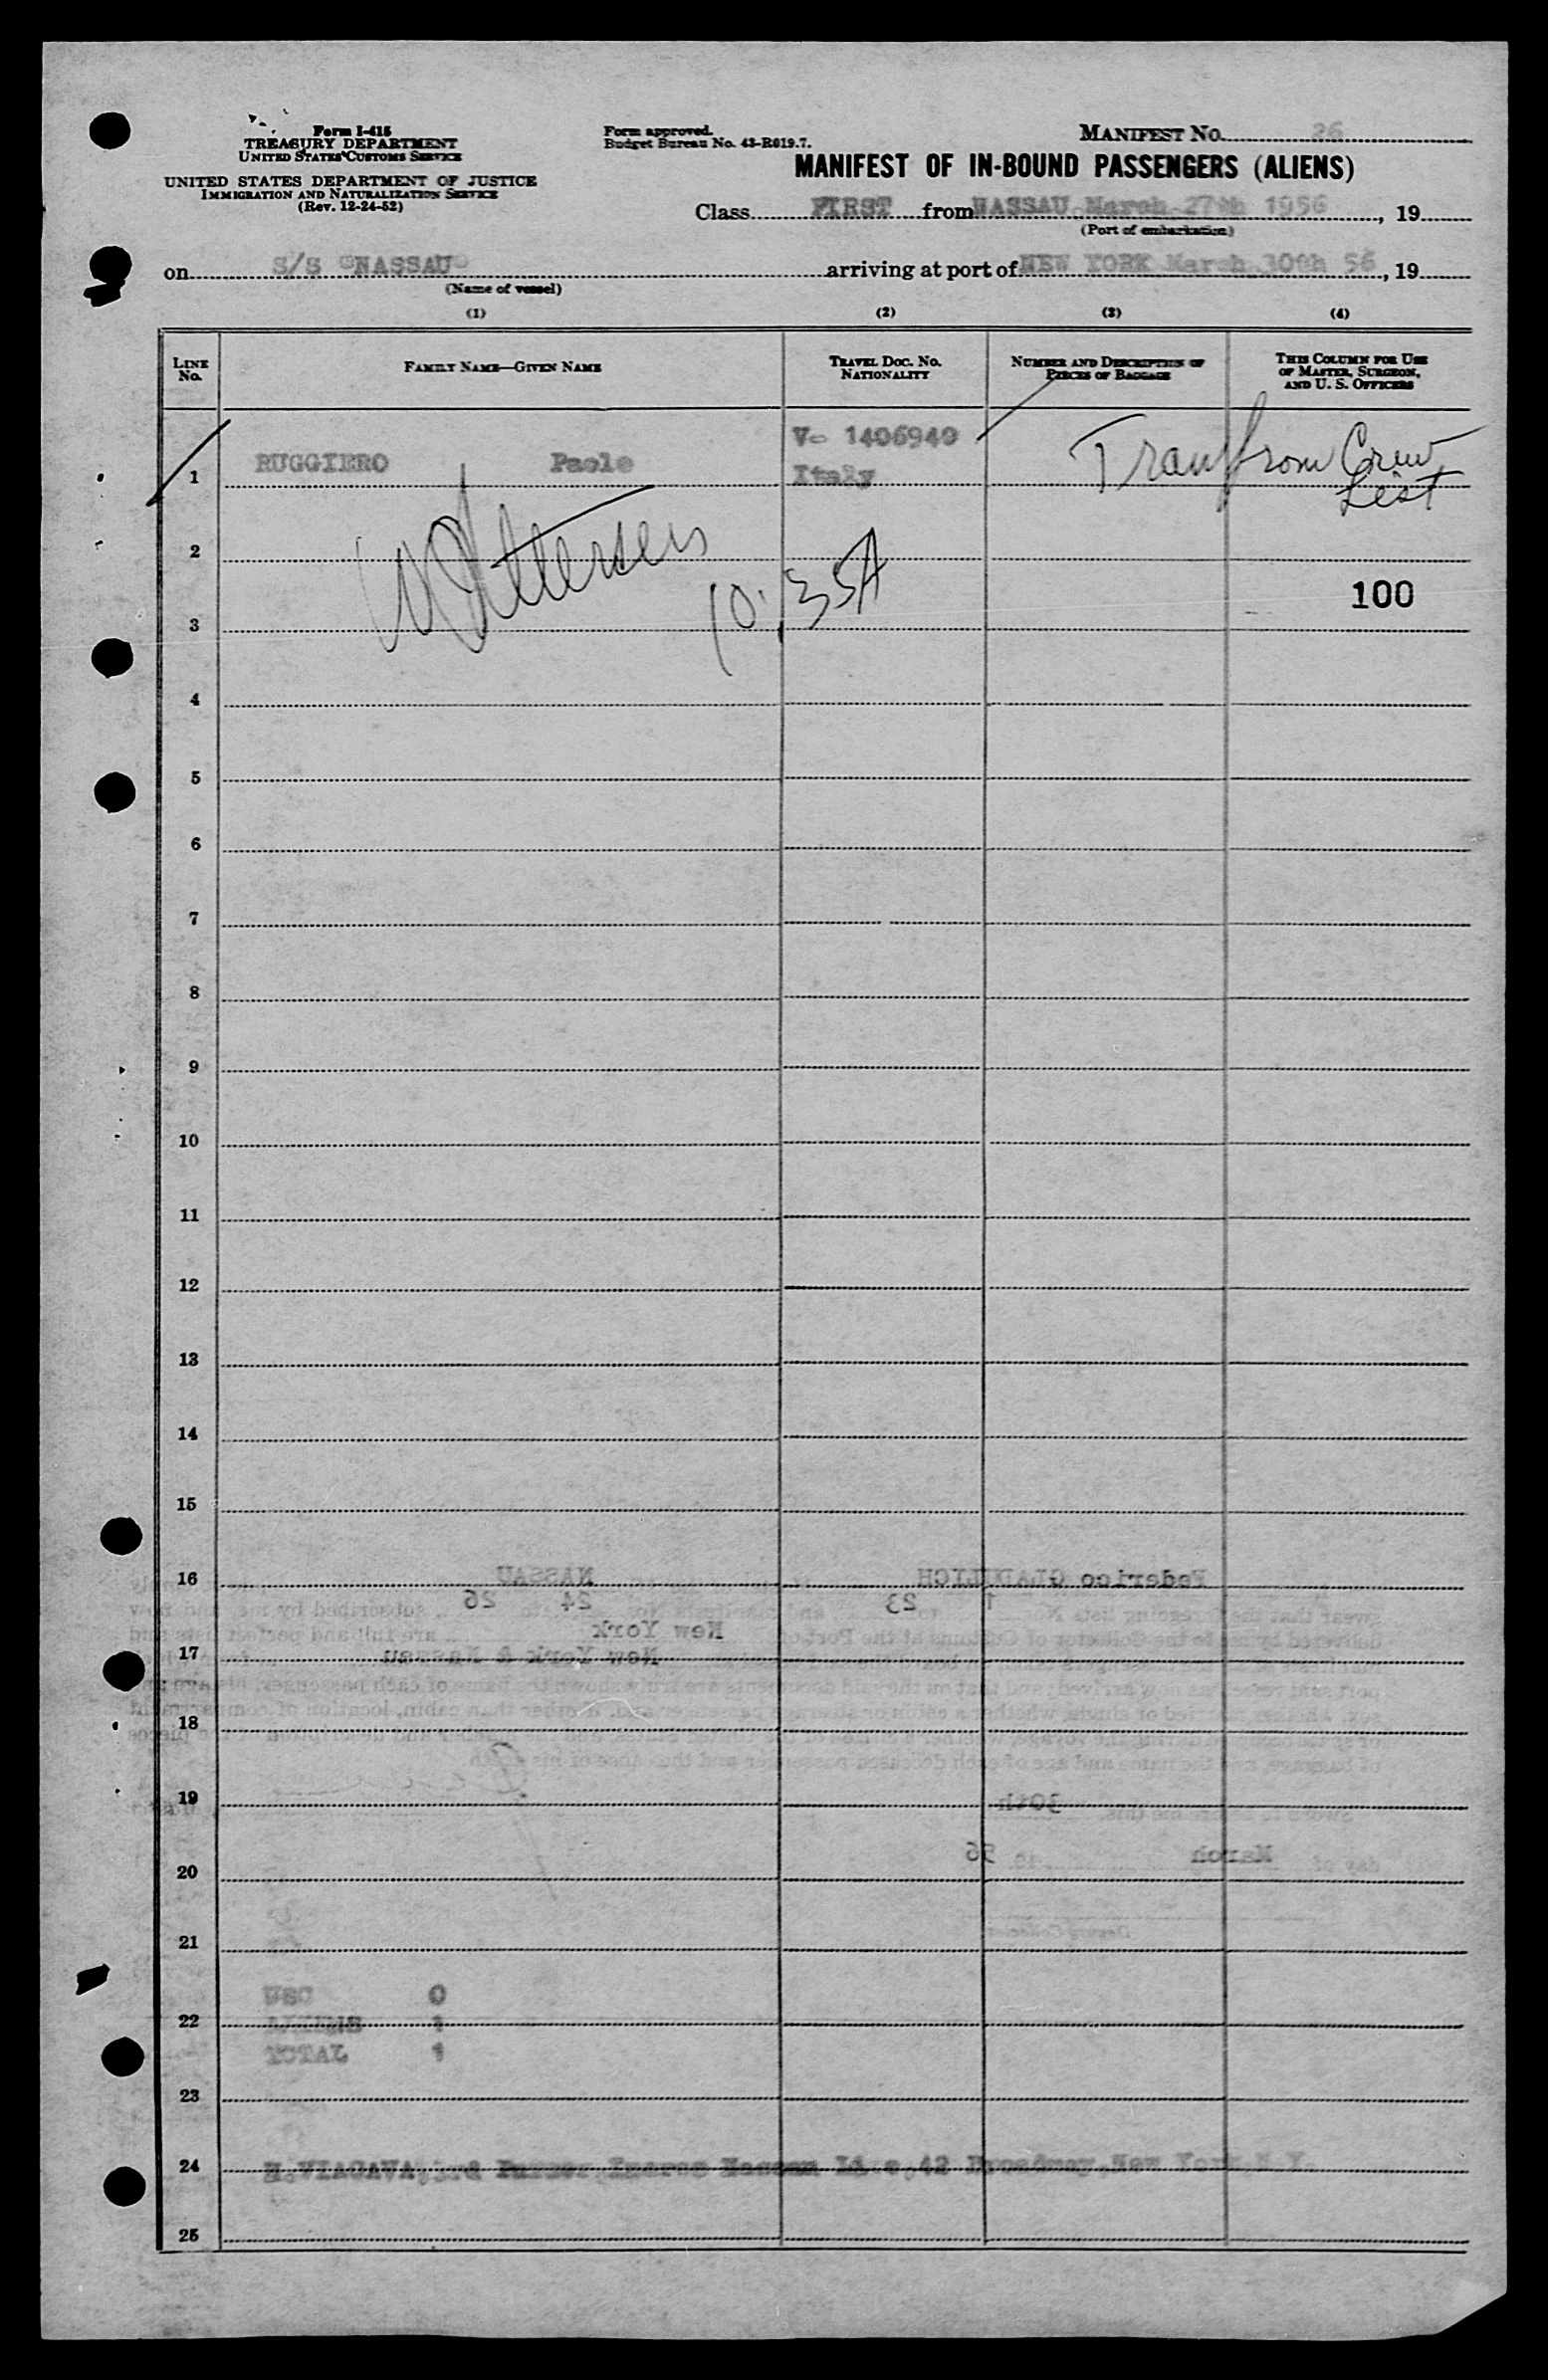 Form I-415
TREASURY DEPARTMENT
UNITED STATES CUSTOMS SERVICE
UNITED STATES DEPARTMENT OF JUSTICE
IMMIGRATION AND NATURALIZATION SERVICE
(Rev. 12-24-52)
Form approved.
Budget Bureau No. 43-R019.7.
MANIFEST NO. 26
MANIFEST OF IN-BOUND PASSENGERS (ALIENS)
Class FIRST from NASSAU March 27th 1956, 19
(Port of embarkation)
on S/S "NASSAU" arriving at port of NEW YORK March 30th 56, 19
(Name of vessel)
(1) (2) (3) (4)
LINE No. FAMILY NAME—GIVEN NAME TRAVEL DOC. NO. NATIONALITY NUMBER AND DESCRIPTION OF PIECES OF BAGGAGE THIS COLUMN FOR USE OF MASTER, SURGEON, AND U. S. OFFICERS
1 RUGGIERO Paolo V- 1406940 Italy Tran from Crew List
2
10.35A
100
3
4
5
6
7
8
9
10
11
12
13
14
15
Federico NASSAU
16
1 23 24 26
New York
17 New York & Nassau
18
19 30th
March 56
20
21
USC 0
22 ALIENS 1
TOTAL 1
23
24 3rd Purser, Nassau 42 Broadway, New York N.Y.
25